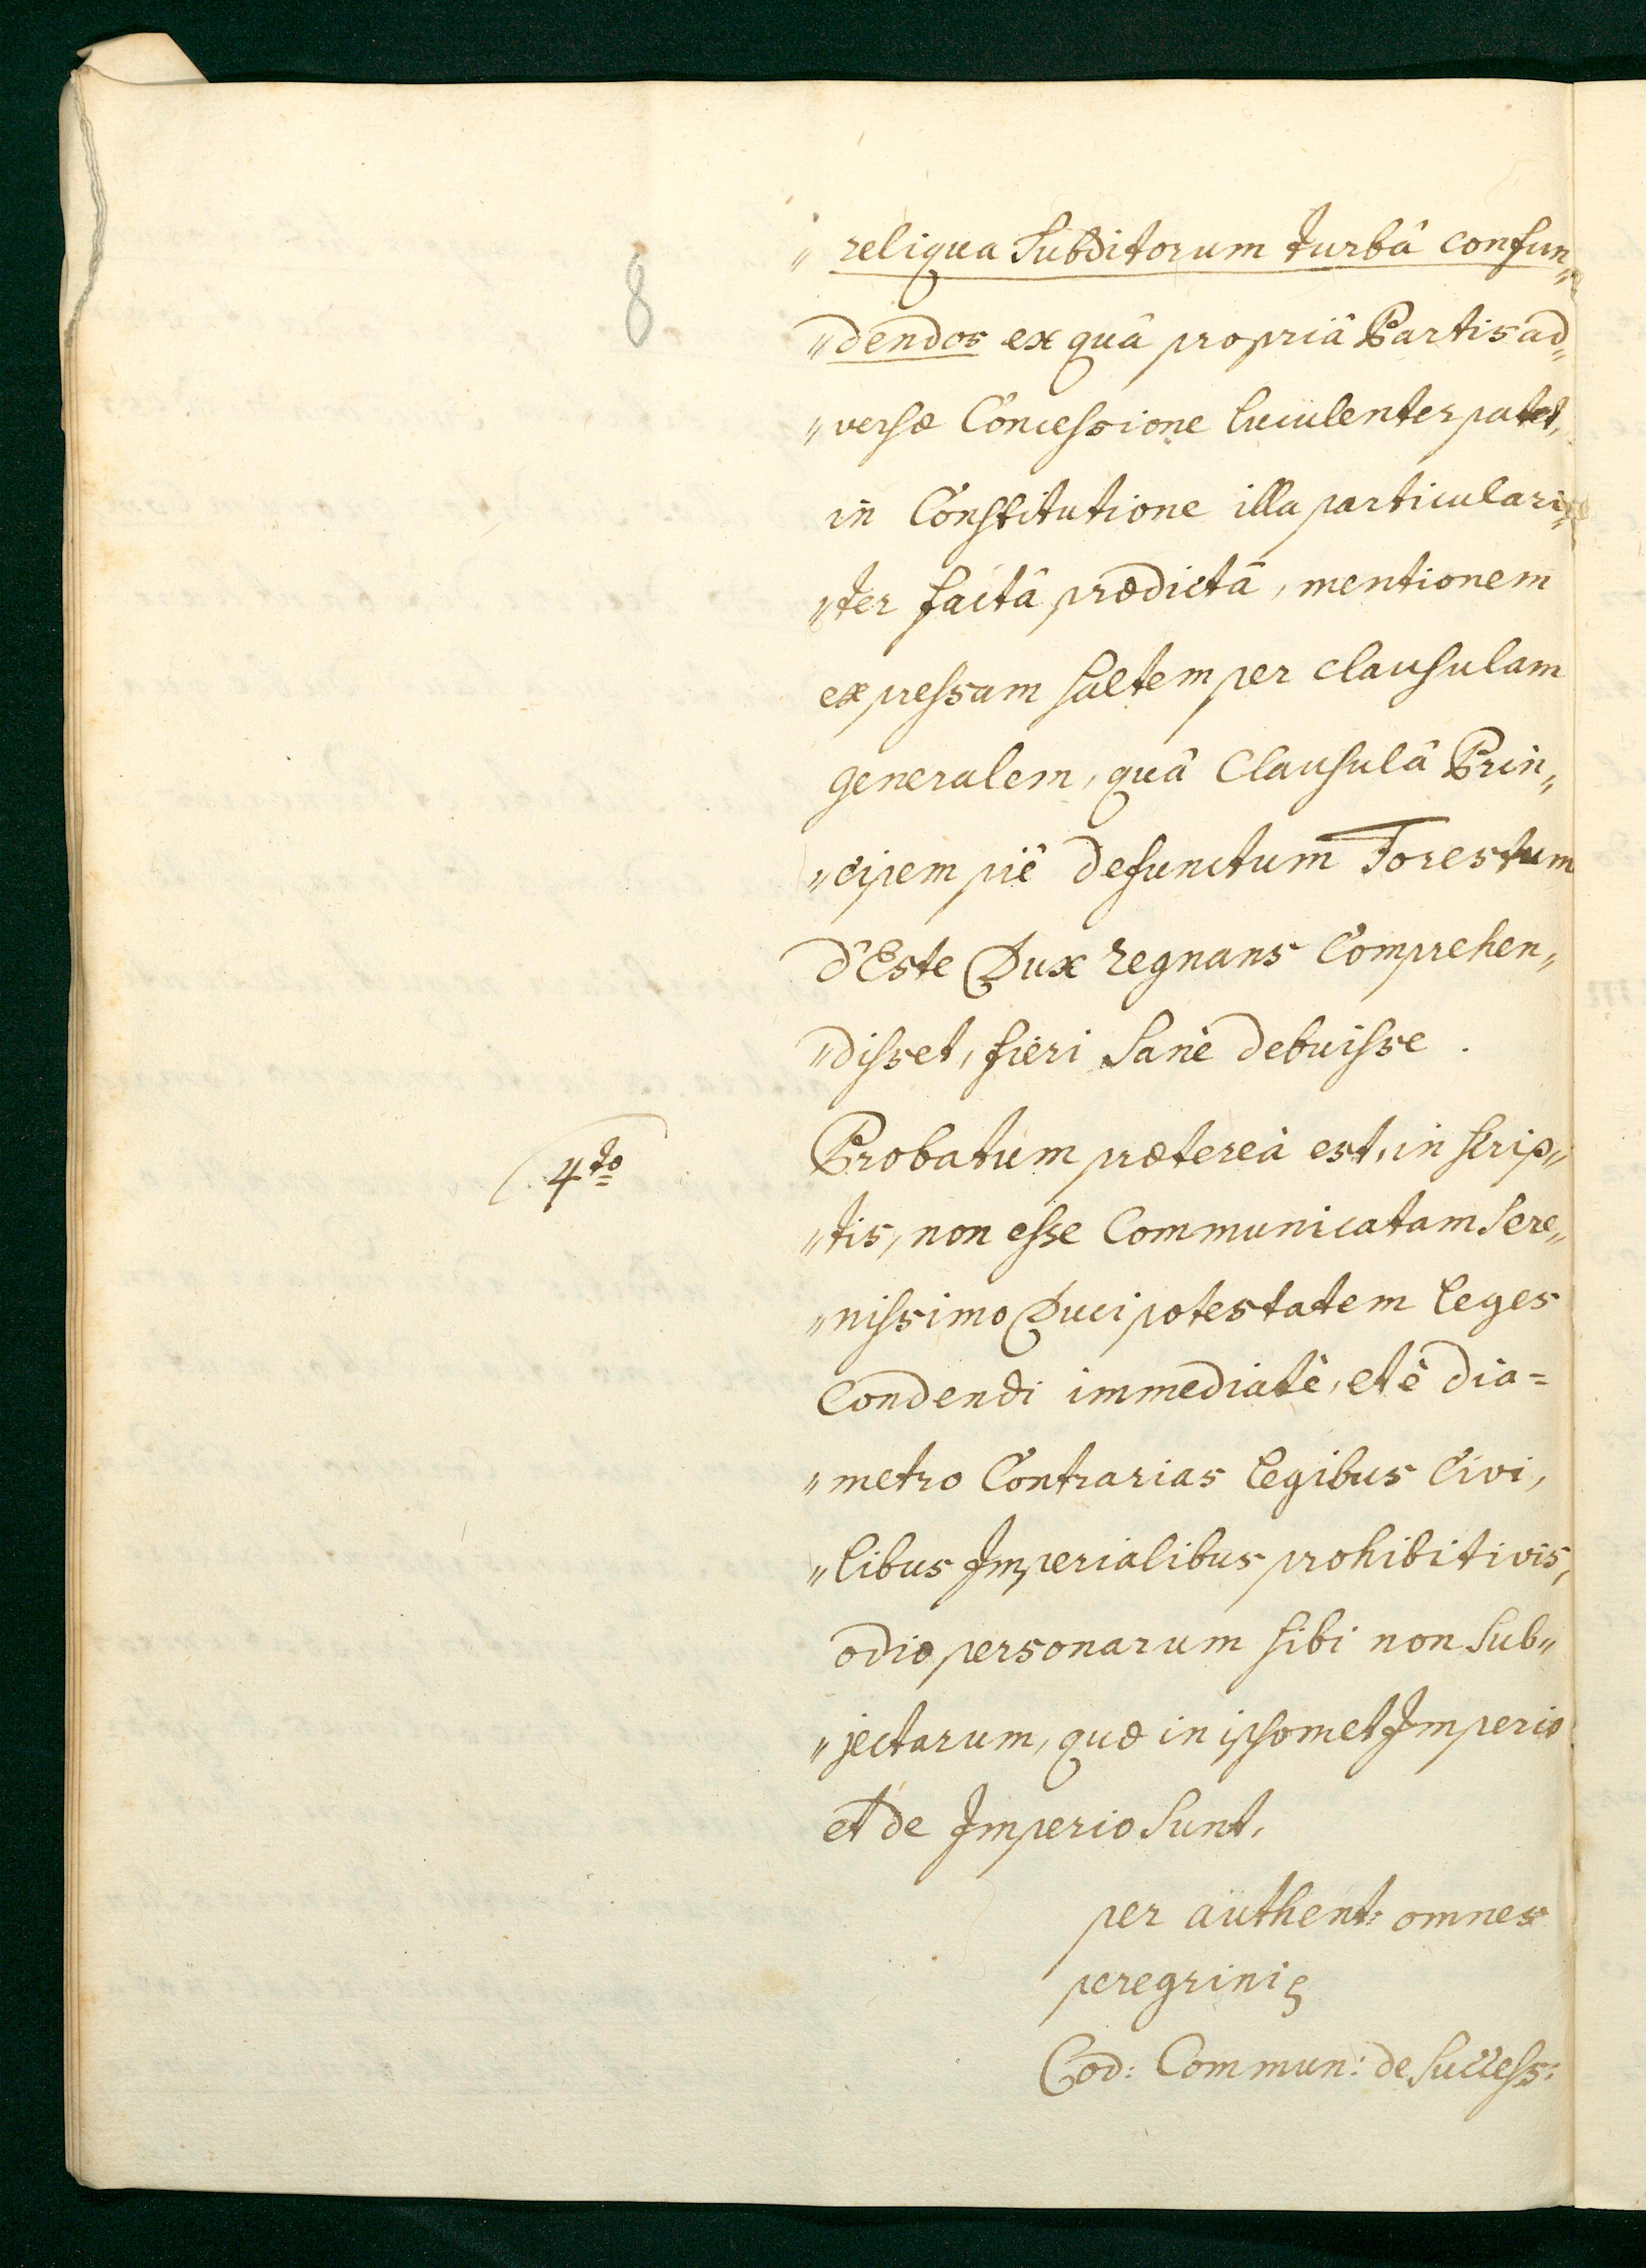 8
„ reliqua Subditorum turbâ confun„
„dendos ex quâ propriâ Partis ad„
„versæ Concessione luculenter patet,
in Constitutione illa particulari„
„ter factâ prædictâ, mentionem
expressam saltem per clausulam
generalem, quâ Clausulâ Prin„
„cipem piè defunctum Forestum
d'Este Dux regnans Comprehen„
„disset, fieri Sanè debuisse .
4to
Probatum prætereà est, in scrip„
„tis, non esse Communicatam Sere„
„nissimo Duci potestatem leges
Condendi immediatè, et è dia=
„metro Contrarias legibus Civi„
„libus Imperialibus prohibitivis,
odio personarum sibi non Sub„
„jectarum, quæ in ipsomet Imperio
et de Imperio Sunt.
per authent: omnes
peregrini
Cod: Commun: de Success: